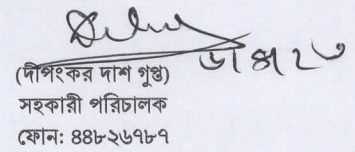 (দীপংকর দাশ গুপ্ত)
সহকারী পরিচালক
ফোন: ৪৪৮২৬৭৮৭